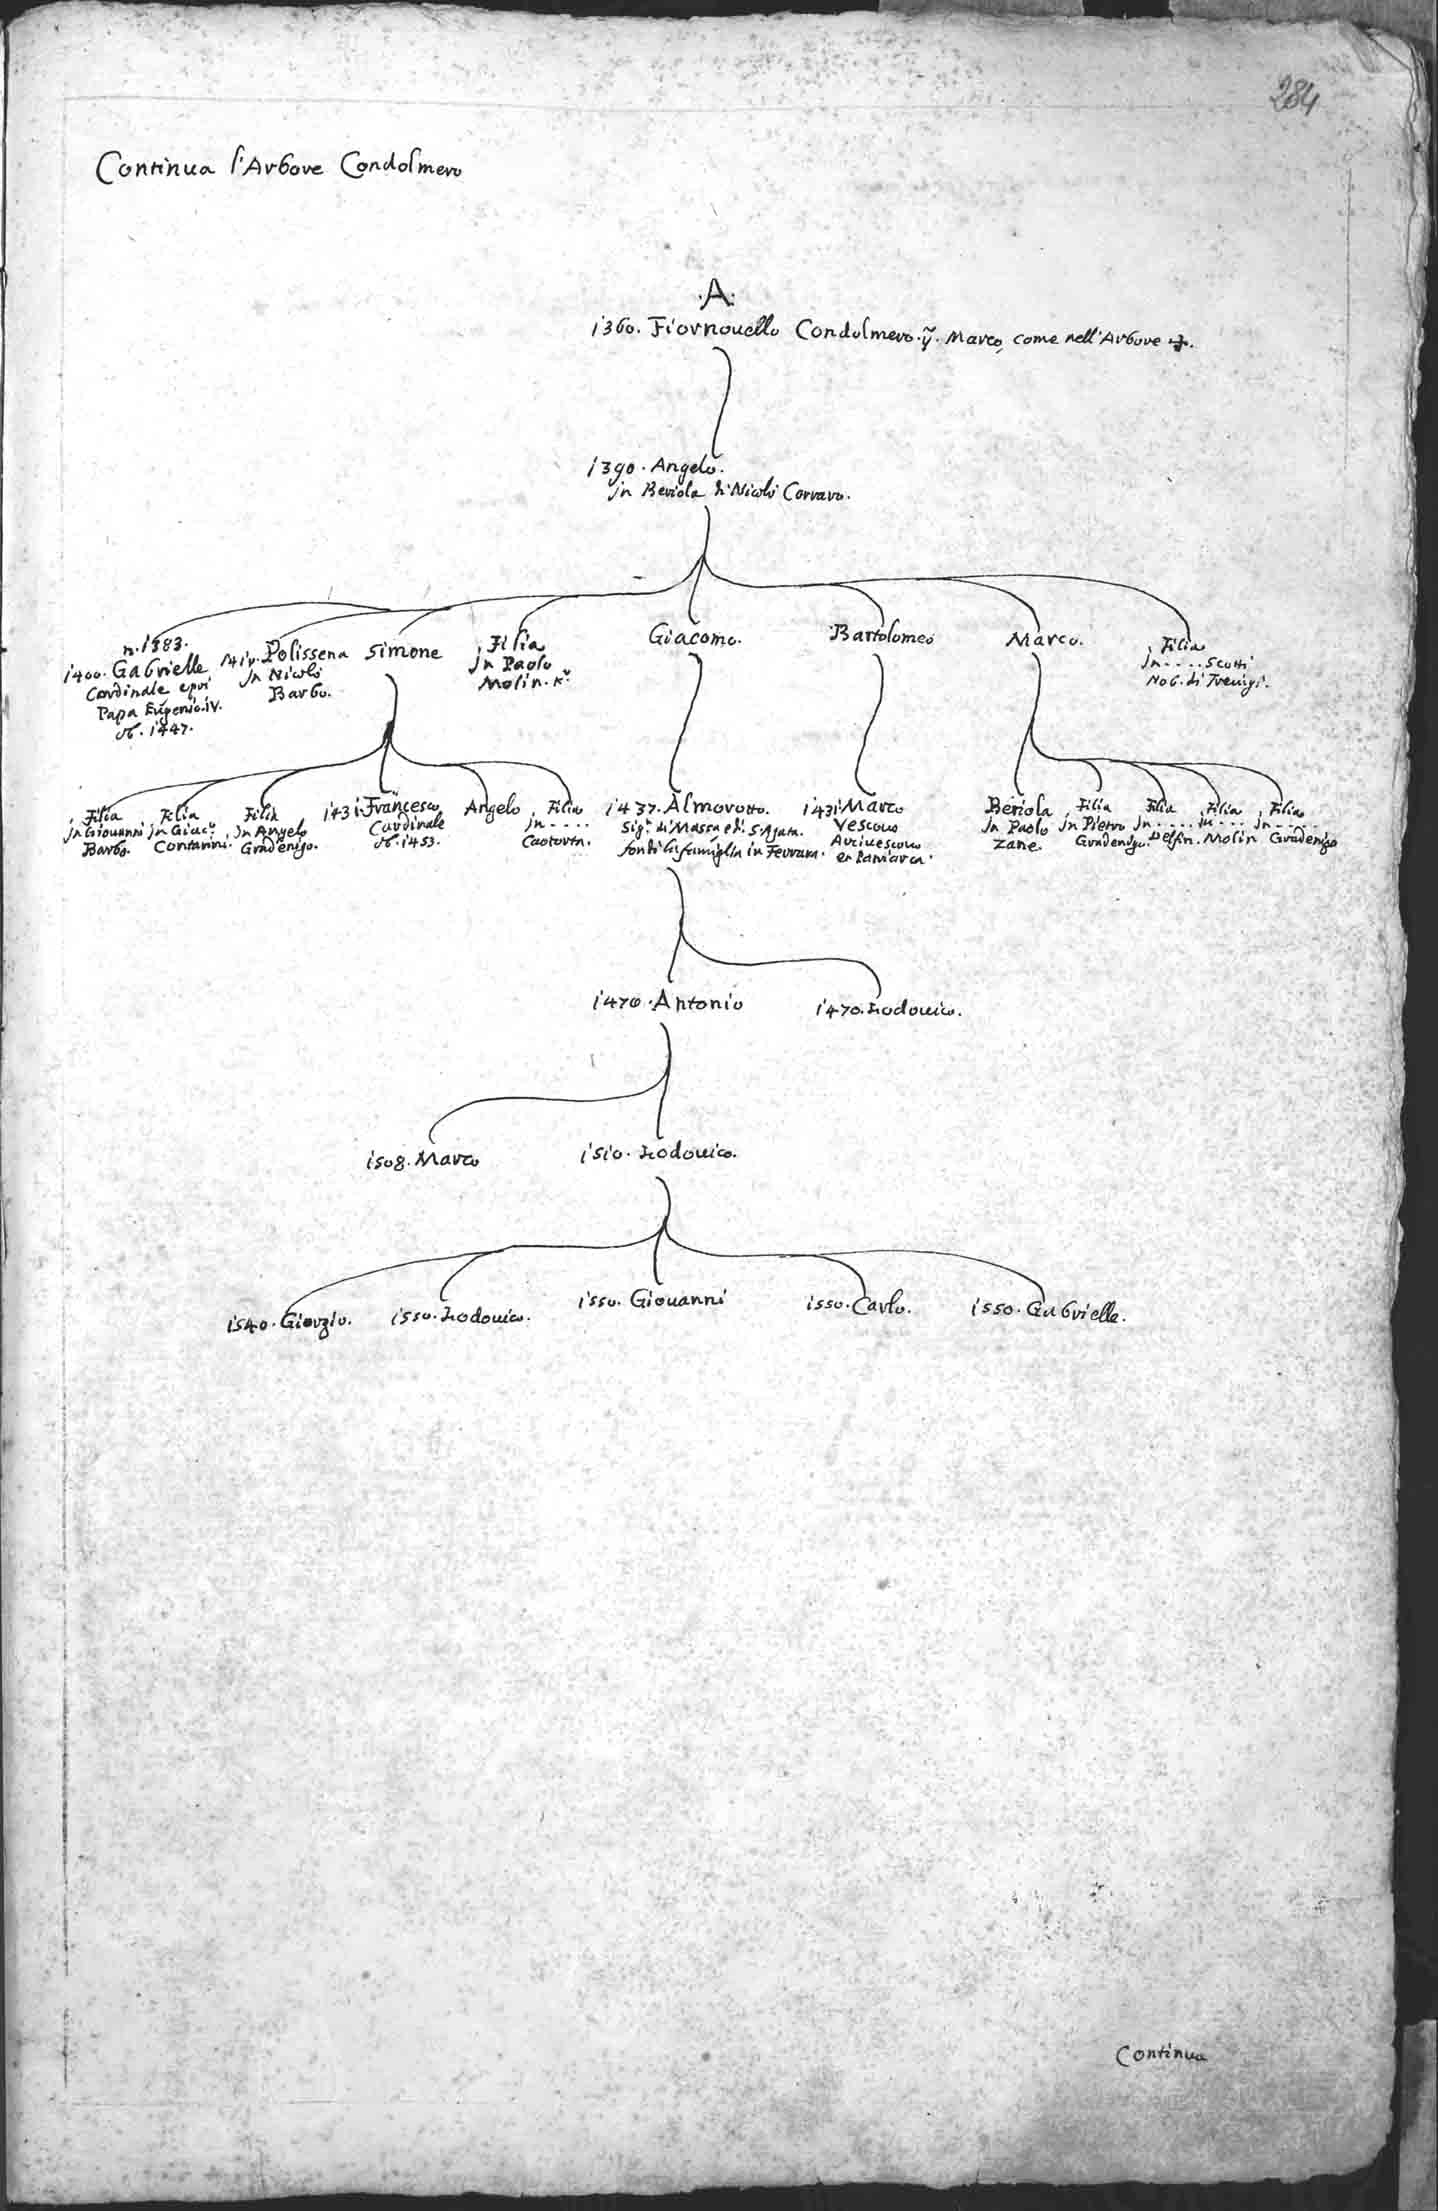 284
Continua l'Arbore Condolmero
.A.
1360. Fiornouello Condolmero. q. Marco, come nell'Arbore
1390. Angelo.
in Beriola di Nicolò Corraro.
n. 1383.
1400. Gabrielle
Cardinale e poi
Papa Eugenio. iv.
ob. 1447.
Polissena
in Nicolò
Barbo.
Simone
Filia
in Paolo
Molin. Kr
Giacomo.
Bartolomeo
Marco.
Filia
in .... Scotti
Nob. di Treuigi.
Filia
in Giouanni
Barbo.
Filia
in Giac.o
Contarini.
Filia
in Angelo
Gradenigo.
1431. Francesco
Cardinale
ob. 1453.
Angelo
Filia
in .....
Caotorta.
1437. Almorotto.
Sig.r di Massa e di S. Agata.
fondò la famiglia in Ferrara.
1431. Marco
Vescouo
Arciuescouo
et Patriarca.
Beriola
in Paolo
Zane.
Filia
in Pietro
Gradenigo.
Filia
in ....
Delfin.
Filia
in ....
Molin
Filia
in ....
Gradenigo
1470. Antonio
1470. Lodouico.
1508. Marco
1510. Lodouico.
1540. Giorgio.
1550. Lodouico.
1550. Giouanni
1550. Carlo.
1550. Gabrielle.
Continua